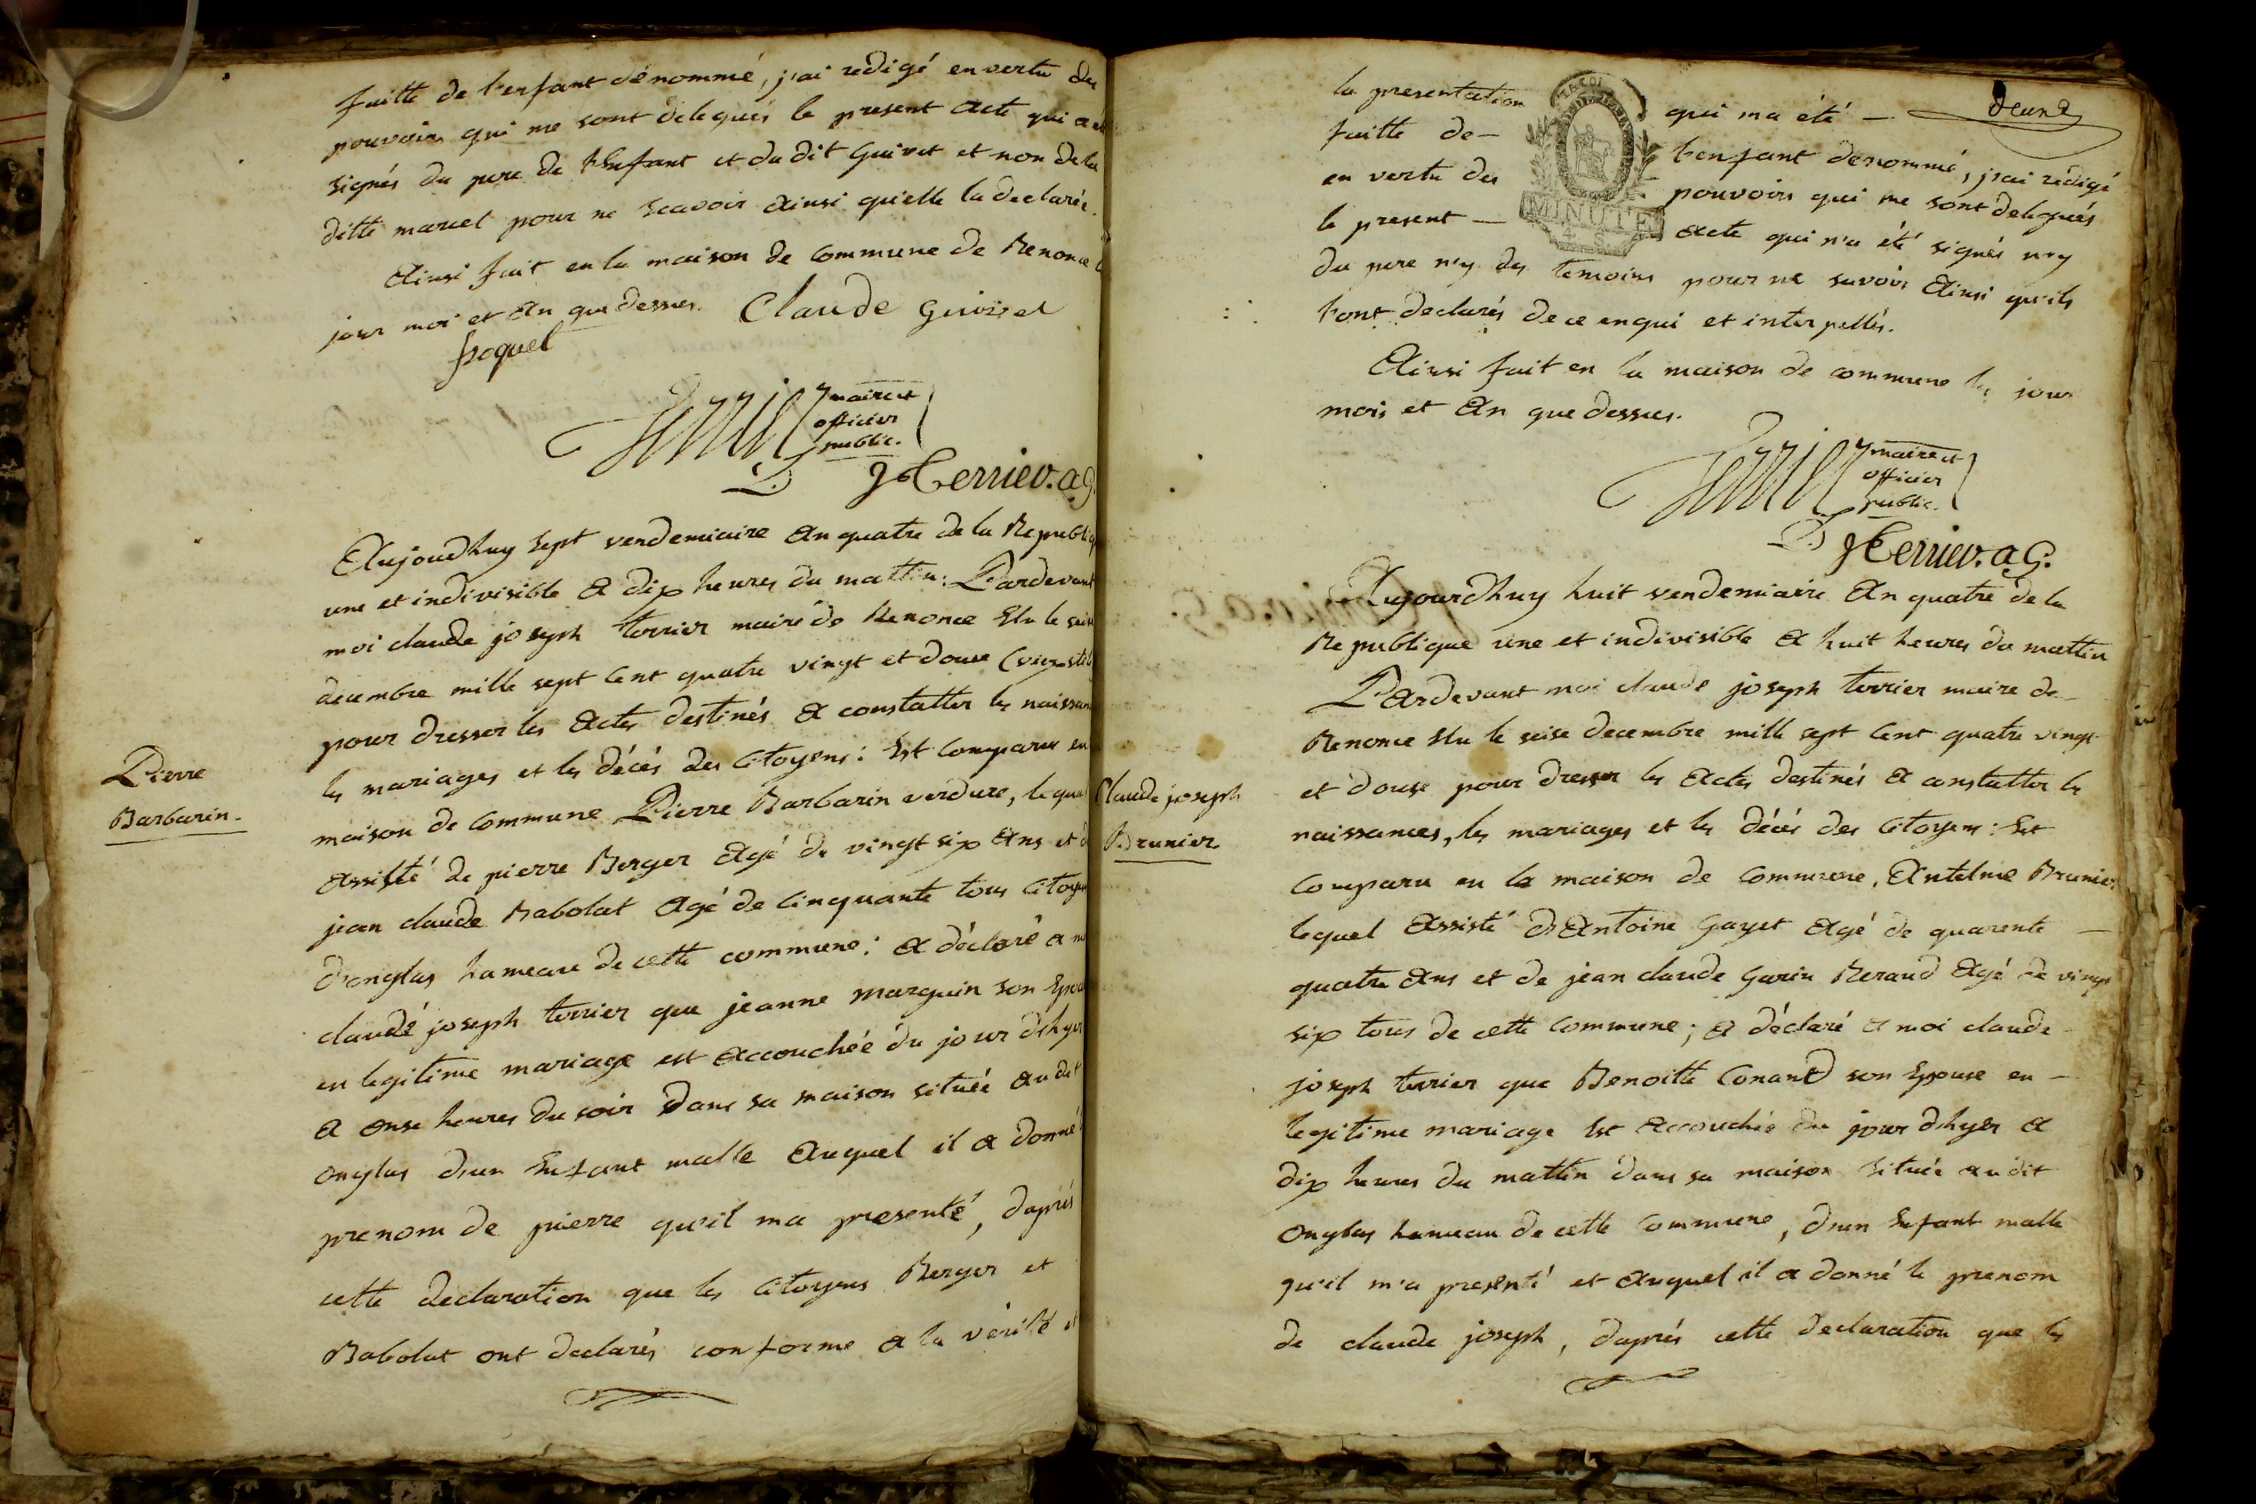 faitte de l'enfant dénommé, j'ai redigé en vertu des
pouvoirs qui me sont delegués le present acte qui a été
signés du pere de l'Enfant et du dit Guivet et non de la
ditte maruel pour ne scavoir ainsi qu'elle la declarée.
Ainsi fait en la maison de commune de Renonce
jour moi et an que dessus. Claude
maire et
officier
public.
Aujourdhuy sept vendemiaire an quatre de la Republiq
une et indivisible a dix heures du mattin: Pardevant
moi claude joseph terrier maire de Renonce Elu le seise
decembre mille sept cent quatre vingt et douse
pour dresser les actes destinés a constatter les naissan
les mariages et les décés des citoyens: Est comparu en
maison de commune Pierre Barbarin verdure, lequel
Pierre
Barbarin.
assisté de pierre Berger agé de vingt six ans et d
jean claude Babolat agé de cinquante tous citoyen
d'onglas hameau de cette commune: a déclaré a moi
claude joseph terrier que jeanne marguin son Epou
en legitime mariage est accouchée du jour d'hyer
a onse heures du soir dans sa maison située au dit
onglas d'un Enfant malle auquel il a donné
prenom de pierre qu'il ma presenté, daprés
cette declaration que les citoyens Berger et
Babolat ont declarés conforme a la vérité et
la presentation qui ma été
faitte de l'enfant denommé, j'ai redigé
en vertu des pouvoirs qui me sont delegués
MINUTE
le present acte qui n'a été signés n'y
du pere n'y des temoins pour ne savoir ainsi qu'ils
l'ont declarés de ce enqui et interpellés.
Ainsi fait en la maison de commune les jour
mois et an que dessus.
maire et
officier
public.
Aujourdhuy huit vendemiaire an quatre de la
Republique une et indivisible a huit heures du mattin
Pardevant moi claude joseph terrier maire de
Renonce Elu le seise decembre mille sept cent quatre vingt
et douse pour dresser les actes destinés a constatter les
Claude joseph
Brunier
naissances, les mariages et les décés des citoyens: Est
comparu en la maison de commune, Antelme Brunier
lequel assisté d'Antoine Gayet agé de quarente
quatre ans et de jean claude Garin Beraud agé de vingt
six tous de cette commune; a déclaré a moi claude
joseph terrier que Benoitte Conand son Epouse en
legitime mariage Est accouchée du jour d'hyer a
dix heures du mattin dans sa maison située au dit
onglas hameau de cette commune, d'un Enfant malle
qu'il m'a presenté et auquel il a donné le prenom
de claude joseph, daprés cette declaration que les